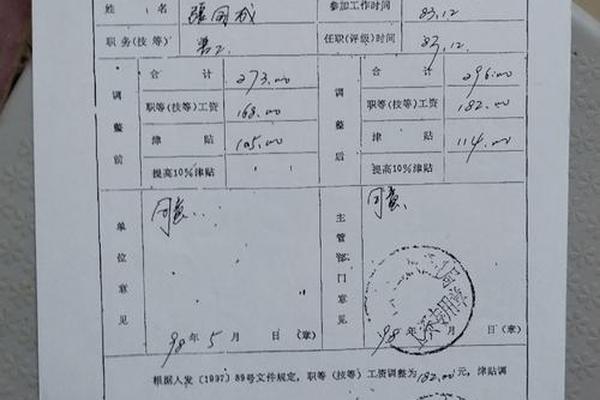 姓 名 張国成 参加工作时间 83.12
职务(技等) 普工 任职(评级)时间 83.12
调整前 合计 273.00 调整后 合计 296.00
职等(技等)工资 168.00 职等(技等)工资 182.00
津贴 105.00 津贴 114.00
提高10%津贴 提高10%津贴
单位意见 同意 主管部门意见 同意
98年5月 日(章) 98年 月 日(章)
根据人发〔1997〕89号文件规定,职等(技等)工资调整为182.00元,津贴调